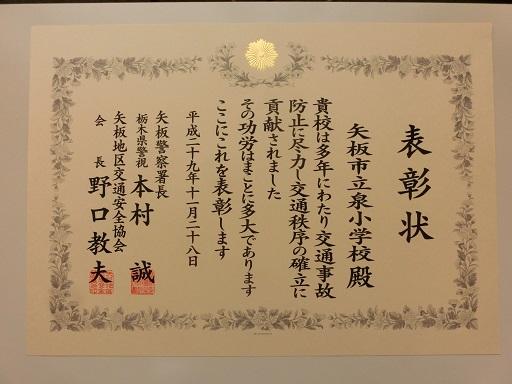 表彰状
矢板市立泉小学校殿
貴校は多年にわたり交通事故
防止に尽力し交通秩序の確立に
貢献されました
その功労はまことに多大であります
ここにこれを表彰します
平成二十九年十一月二十八日
矢板警察署長
栃木県警視 本村 誠
矢板地区交通安全協会
会長 野口教夫